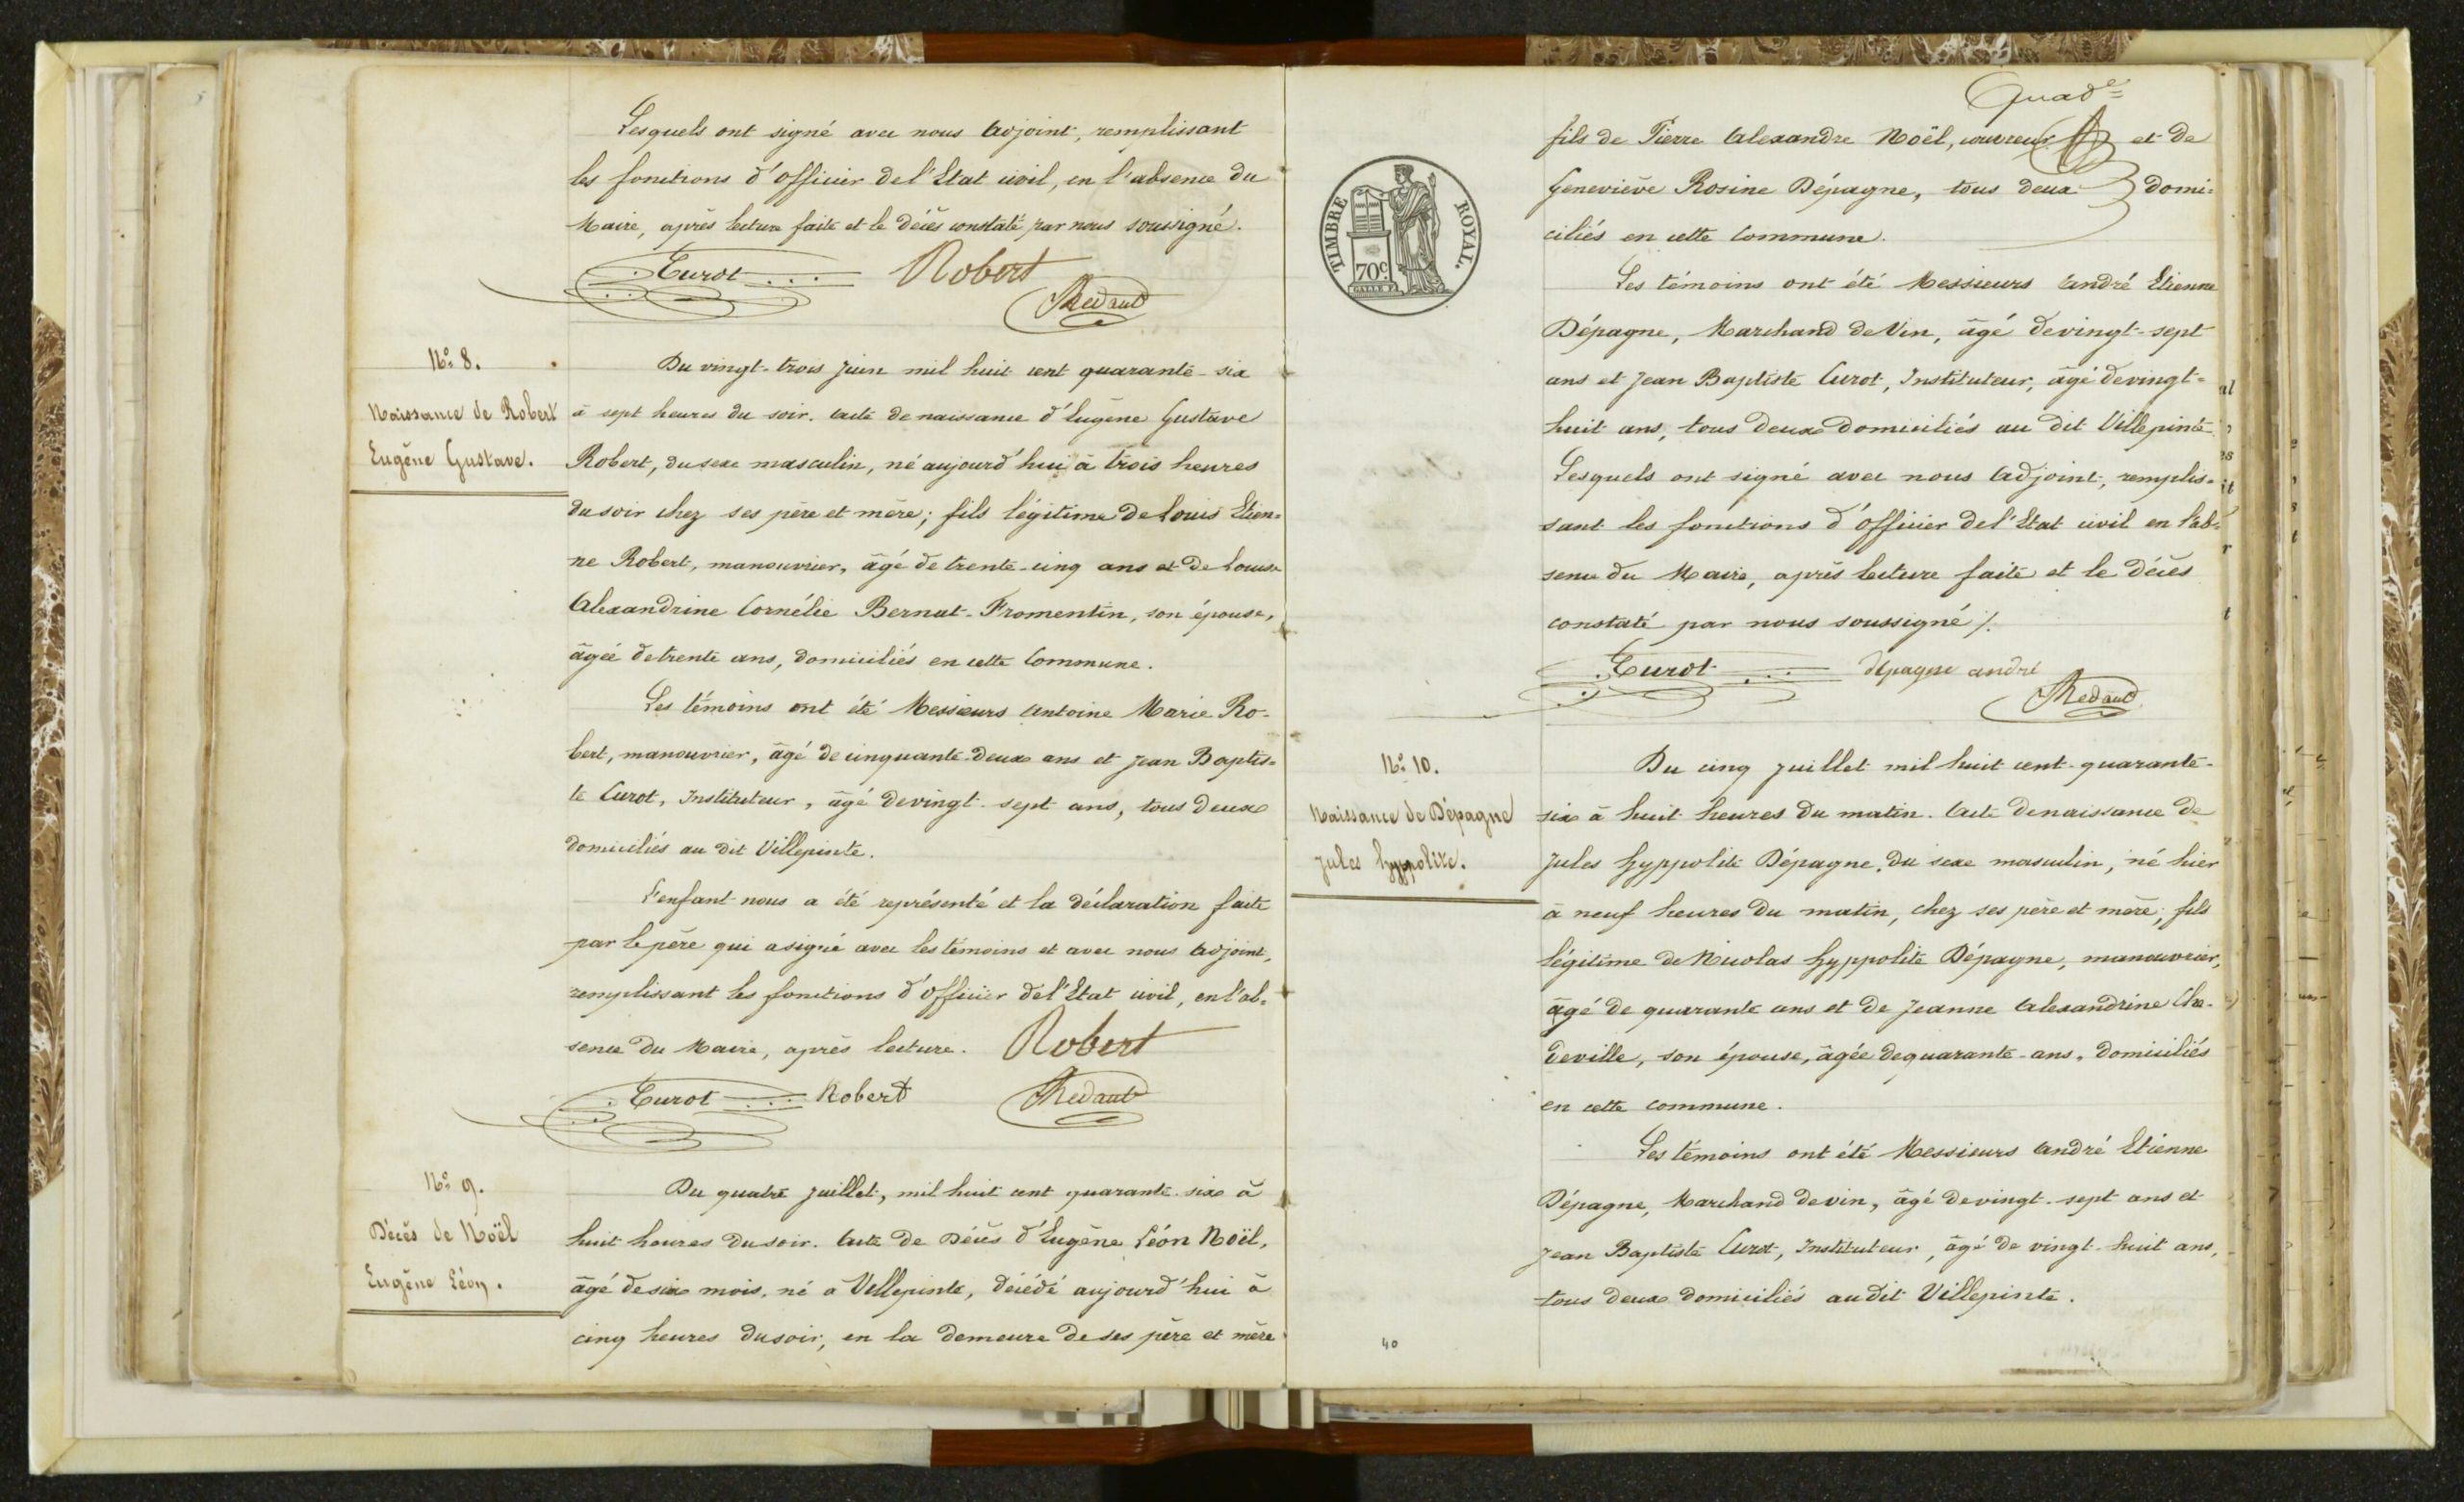 Lesquels ont signé avec nous Adjoint, remplissant
les fonctions d'officier de l'Etat civil, en l'absence du
Maire, après lecture faite et le décès constaté par nous soussigné.
Curot Robert
Medaut
N.° 8.
Naissance de Robert
Eugène Gustave.
Du vingt-trois juin mil huit cent quarante-six
à sept heures du soir. Acte de naissance d'Eugène Gustave
Robert, du sexe masculin, né aujourd'hui à trois heures
du soir chez ses père et mère; fils légitime de Louis Etien=
ne Robert, manouvrier, âgé de trente-cinq ans et de Louise
Alexandrine Cornélie Bernat-Fromentin, son épouse,
âgée de trente ans, domiciliés en cette Commune.
Les témoins ont été Messieurs Antoine Marie Ro-
bert, manouvrier, âgé de cinquante-deux ans et Jean Baptis=
te Curot, Instituteur, âgé de vingt-sept ans, tous deux
domiciliés au dit Villepinte.
L'enfant nous a été représenté et la déclaration faite
par le père qui a signé avec les témoins et avec nous Adjoint,
remplissant les fonctions d'officier de l'Etat civil, en l'ab=
sence du Maire, après lecture. Robert
Curot Robert Medaut
N.° 9.
Décès de Noël
Eugène Léon.
Du quatre juillet, mil huit cent quarante-six à
huit heures du soir. Acte de Décès d'Eugène Léon Noël,
âgé de six mois, né à Villepinte, décédé aujourd'hui à
cinq heures du soir, en la demeure de ses père et mère
TIMBRE ROYAL.
70c.
fils de Pierre Alexandre Noël, couvreur et de
Geneviève Rosine Dépagne, tous deux domi=
ciliés en cette Commune.
Les témoins ont été Messieurs André Etienne
Dépagne, Marchand de Vin, âgé de vingt-sept
ans et Jean Baptiste Curot, Instituteur, âgé de vingt=
huit ans, tous deux domiciliés au dit Villepinte.
Lesquels ont signé avec nous Adjoint, remplis=
sant les fonctions d'officier de l'Etat civil en l'ab=
sence du Maire, après lecture faite et le décès
constaté par nous soussigné ./.
Curot dépagne andré
Medaut
N.° 10.
Naissance de Dépagne
Jules Hyppolite.
Du cinq juillet mil huit cent quarante-
six à huit heures du matin. Acte de naissance de
Jules Hyppolite Dépagne, du sexe masculin, né hier
à neuf heures du matin, chez ses père et mère; fils
légitime de Nicolas Hyppolite Dépagne, manouvrier,
âgé de quarante ans et de Jeanne Alexandrine Che-
deville, son épouse, âgée de quarante-ans, domiciliés
en cette commune.
Les témoins ont été Messieurs André Etienne
Dépagne, Marchand de vin, âgé de vingt-sept ans et
Jean Baptiste Curot, Instituteur, âgé de vingt-huit ans,
tous deux domiciliés au dit Villepinte.
40